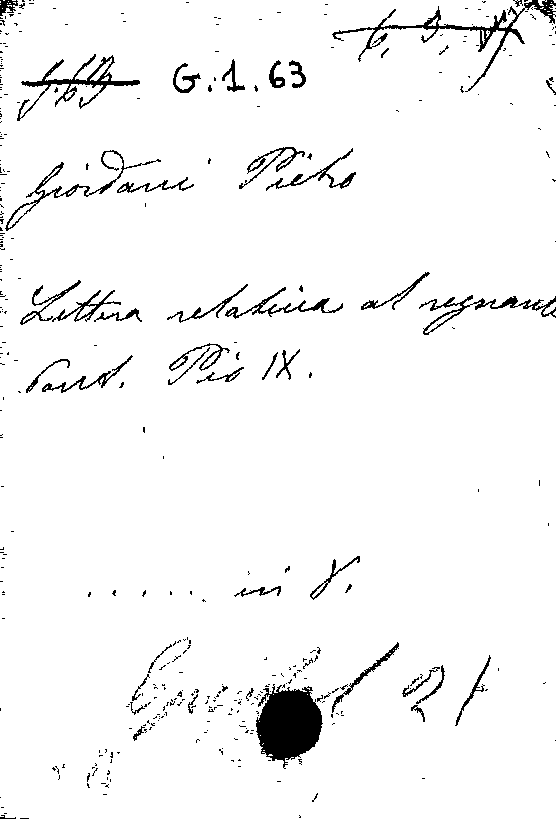 G.1.63
Giordani Pietro
Lettera relativa al regnante
Pont. Pio IX.
...... in 8.
21